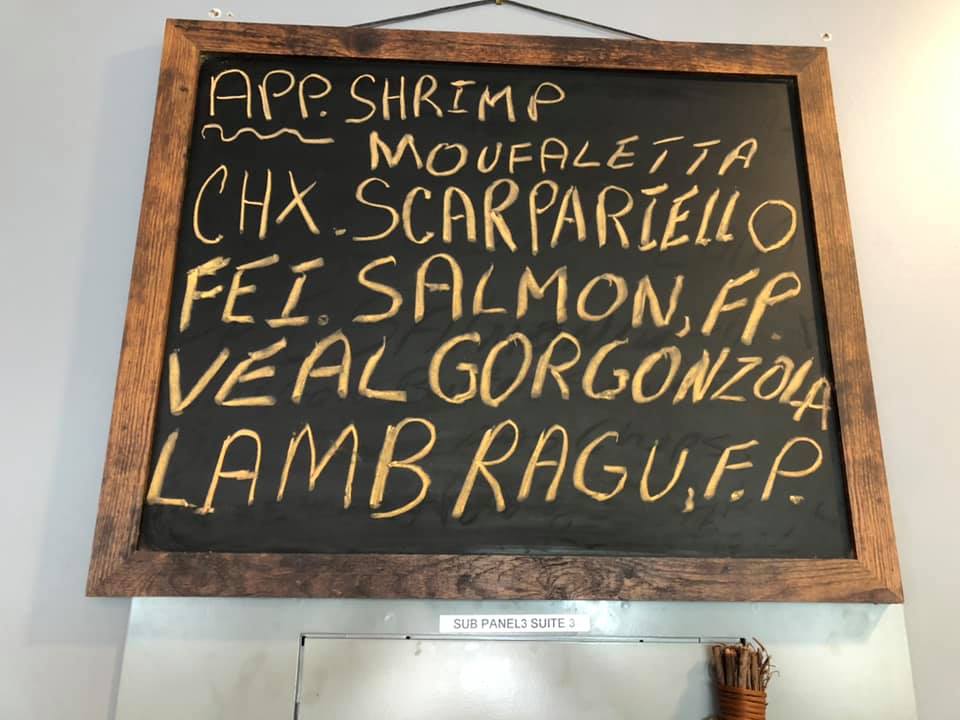 APP. SHRIMP
MOUFALETTA
CHX. SCARPARIELLO
FEI. SALMON, FP.
VEAL GORGONZOLA
LAMB RAGU, F.P.
SUB PANEL3 SUITE 3